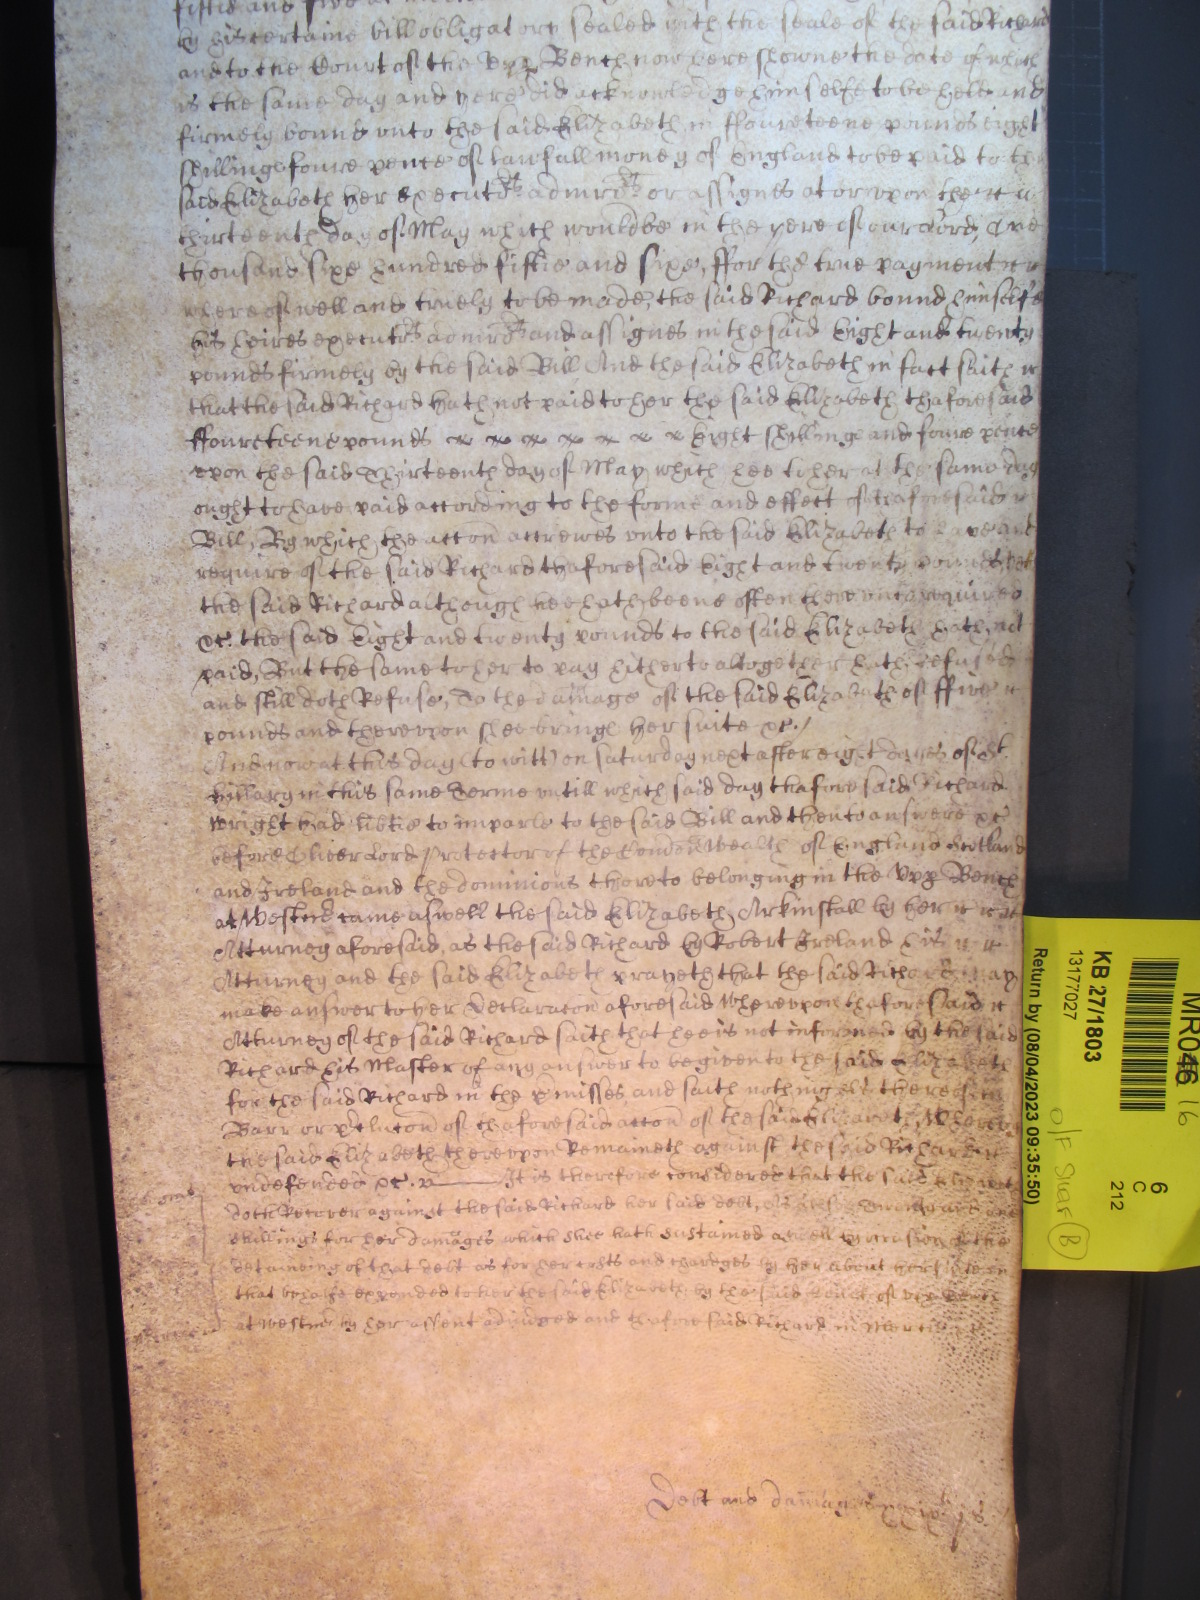 fiftie and five at
by his certaine bill obligatory sealed with the seale of the said Richard
and to the Court of the Upp Bench now here showne the date of which
is the same day and yere did acknowledge himselfe to be held and
firmely bound unto the said Elizabeth in ffoureteene pounds eight
shillings foure pence of lawfull money of England to be paid to the
said Elizabeth her executrs admrs or assignes at or upon the
thirteenth day of May which wouldbe in the yere of our Lord, One
thousand sixe hundred fiftie and sixe, ffor the true payment
whereof well and truely to be made, the said Richard bound himselfe
his heires executrs admrs and assignes in the said Eight and twenty
pounds firmely by the said Bill And the said Elizabeth in fact saith
that the said Richard hath not paid to her the said Elizabeth thaforesaid
ffoureteene pounds Eight shillings and foure pence
upon the said Thirteenth day of May which hee to her at the same day
ought to have paid according to the forme and effect of thaforesaid
Bill, By which the accon accrewes unto the said Elizabeth to have and
require of the said Richard thaforesaid Eight and twenty pounds yet
the said Richard although hee hath beene often thereunto required
&c. the said Eight and twenty pounds to the said Elizabeth hath not
paid, But the same to her to pay hitherto altogether hath refused
and still doth Refuse, To the damage of the said Elizabeth of ffive
pounds and thereupon shee brings her suite &c./
And now at this day (to witt) on saturday next after eight dayes of St.
hillary in this same Terme untill which said day thaforesaid Richard
Wright had libtie to imparle to the said Bill and then to answere &c
before Oliver Lord Protector of the Comon Wealth of England Scotland
and Ireland and the dominions thereto belonging in the Upp Bench
at Westmr came aswell the said Elizabeth Arkinstall by her
Atturney aforesaid, as the said Richard by Robert Ireland his
Atturney and the said Elizabeth prayeth that the said Richard may
make answer to her Declaracon aforesaid Whereupon thaforesaid
Atturney of the said Richard saith that hee is not informed by the said
Richard his Master of any answer to be given to the said Elizabeth
for the said Richard in the pmisses, and saith nothing els thereof in
Barr or pclucon of thaforesaid accon of the said Elizabeth, Whereby
the said Elizabeth thereupon Remaineth against the said Richard
undefended &c. It is therefore considered that the said Elizabeth
doth Recover against the said Richard her said debt, and
shillings for her damages which shee hath sustained aswell by occasion of the
detaineing of that debt as for her costs and chardges by her about her suite in
that behalfe expended to her the said Elizabeth by the said Court of Upp Bench
at Westmr by her assent adjudged and thaforesaid Richard in Mercie &c
Debt and damages xxix li s.
MR046 16
KB 27/1803
13177027
Return by (08/04/2023 09:35:50)
6
C
212
O/F Shelf (B)